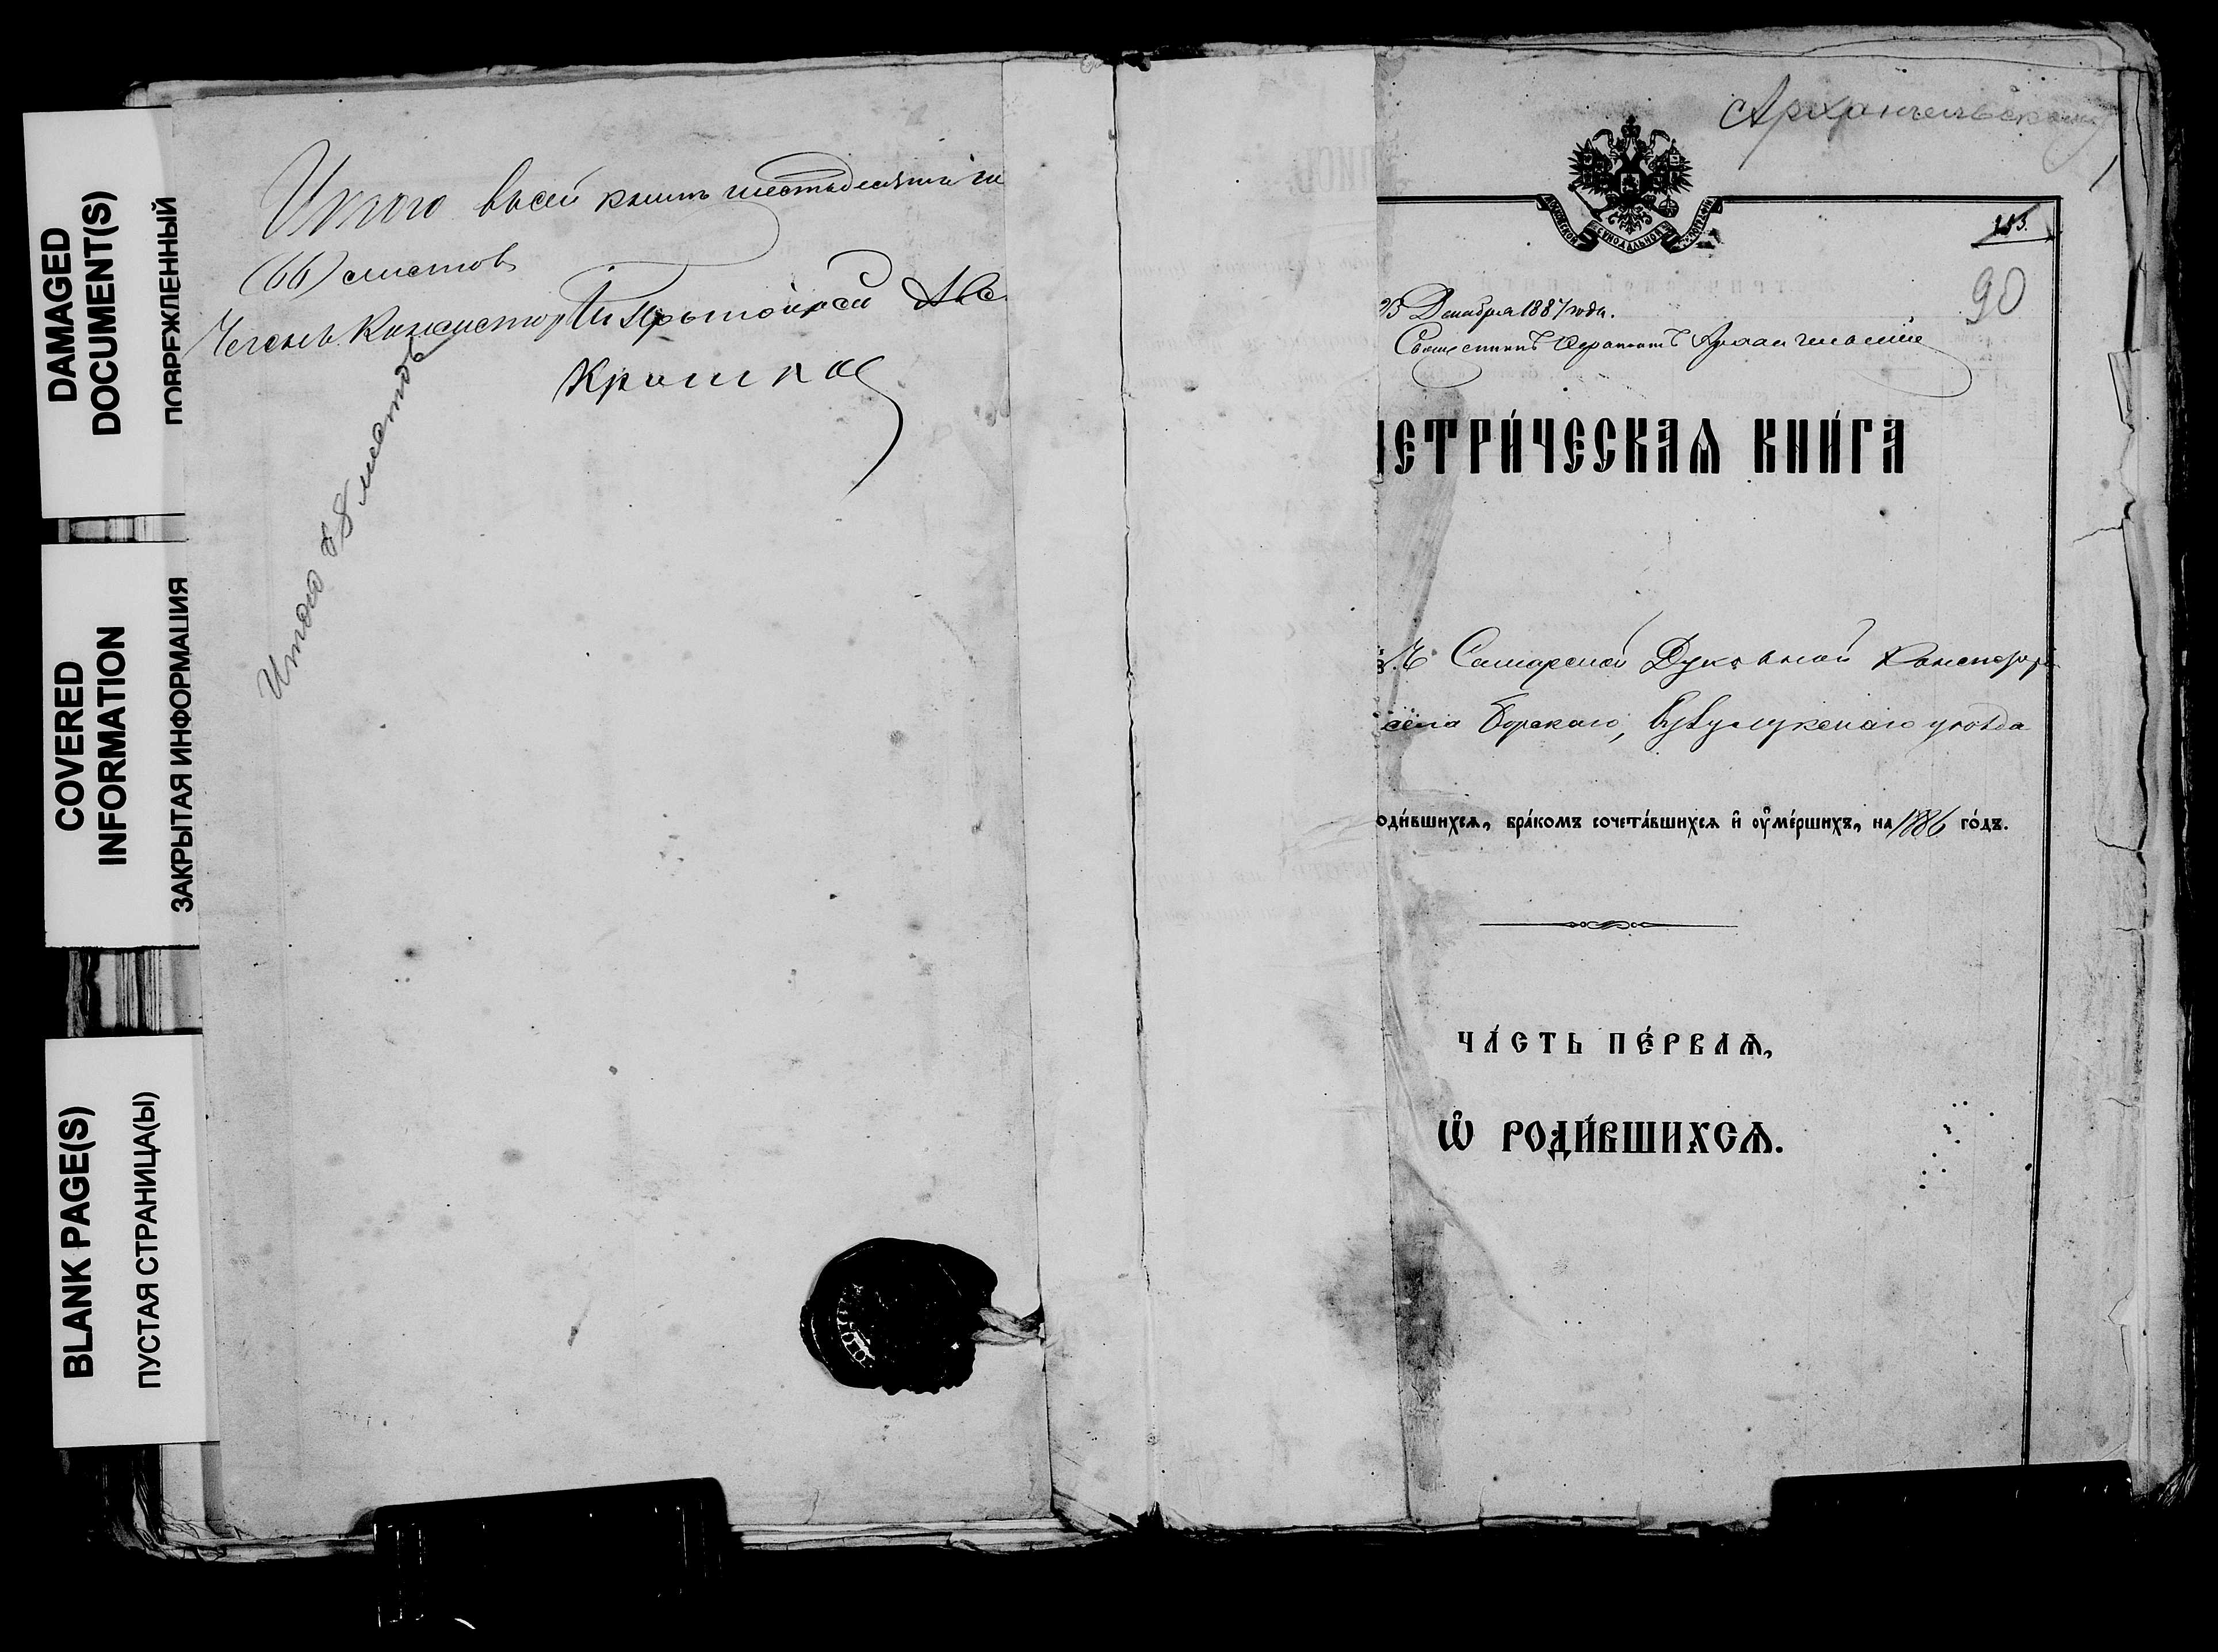 DAMAGED
DOCUMENT(S)
ПОВРЕЖДЕННЫЙ
COVERED
INFORMATION
ЗАКРЫТАЯ ИНФОРМАЦИЯ
BLANK PAGE(S)
ПУСТАЯ СТРАНИЦА(Ы)
Итого всей книги шестьдесят
(66) листов
Членъ Консисторіи
Итого 58 листов
Архангельскому
153.
90
Декабря 1887 года.
Священникъ Архангельскій
ЕТРИ́ЧЕСКАѦ КНИ́ГА
Самарской Духовной Консисторіи
села Борскаго, Бузулукскаго уѣзда
оди́вшихсѧ, бра́комъ сочета́вшихсѧ и҆ ᲂу҆ме́ршихъ, на 1886 го́дъ.
ЧА́СТЬ ПЕ́РВАѦ,
Ѡ҆ РОДИ́ВШИХСѦ.